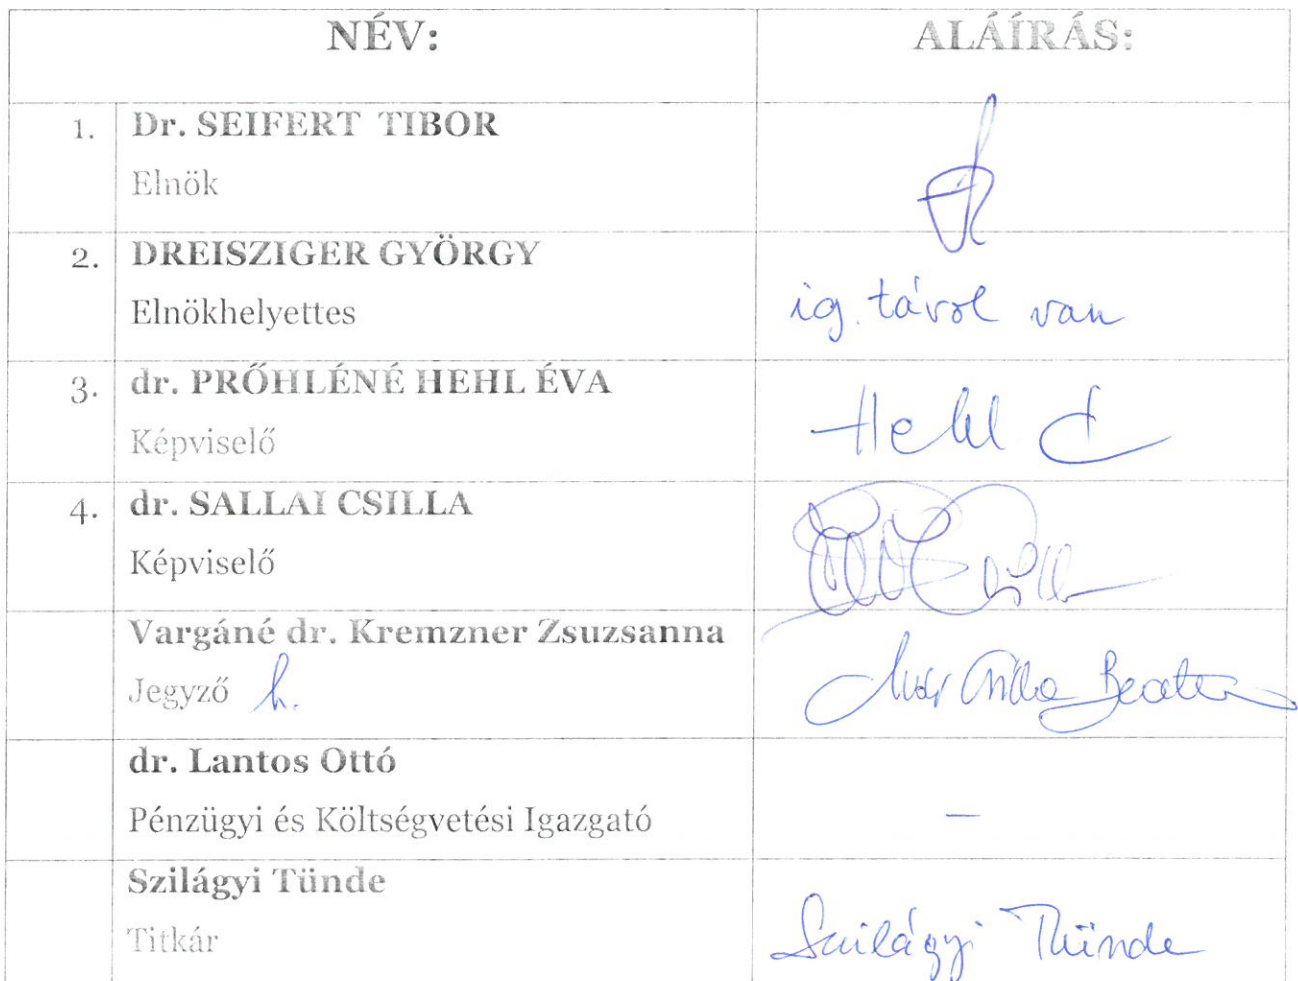 NÉV: ALÁÍRÁS:
1. Dr. SEIFERT TIBOR
Elnök
2. DREISZIGER GYÖRGY
Elnökhelyettes ig. távol van
3. dr. PRŐHLÉNÉ HEHL ÉVA
Képviselő Hehl É
4. dr. SALLAI CSILLA
Képviselő
Vargáné dr. Kremzner Zsuzsanna
Jegyző h. Csilla Beata
dr. Lantos Ottó
Pénzügyi és Költségvetési Igazgató –
Szilágyi Tünde
Titkár Szilágyi Tünde